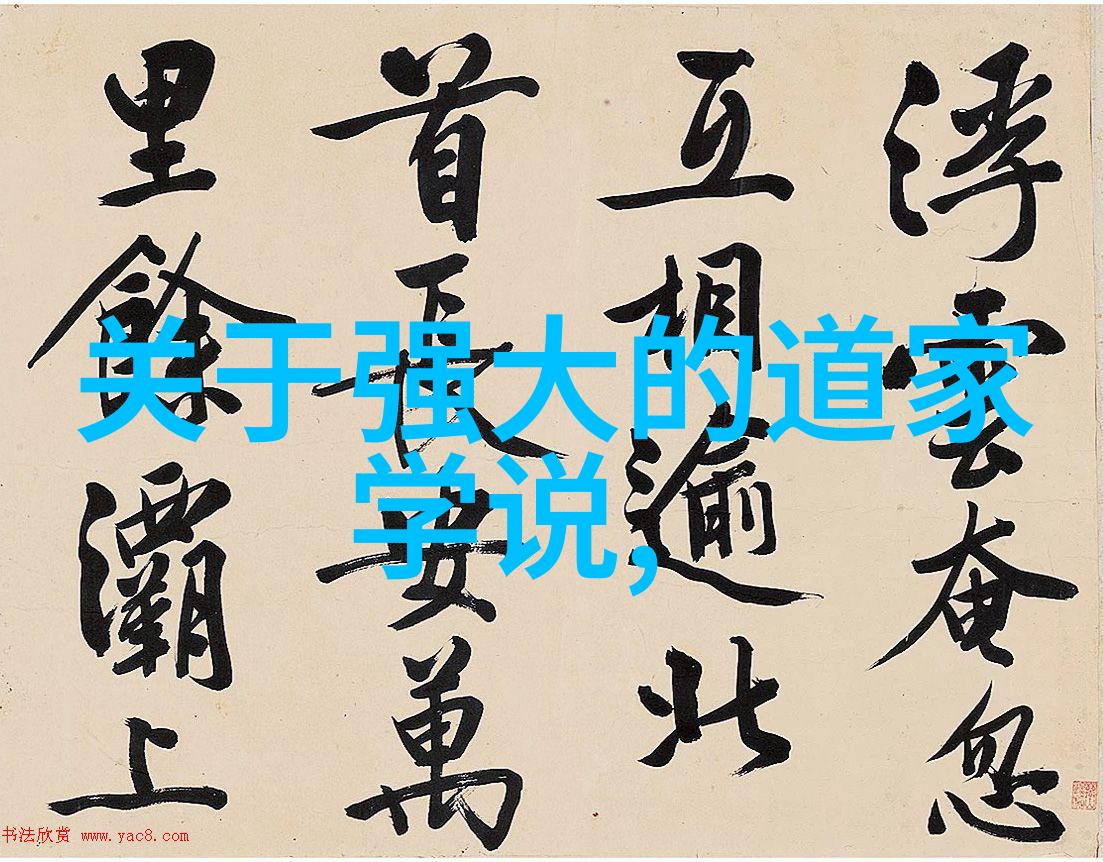 关于强大的道家
学说,
浮雲奄忽
互相逾北
首長安萬
里餘灞上
书法欣赏 www.yac8.com